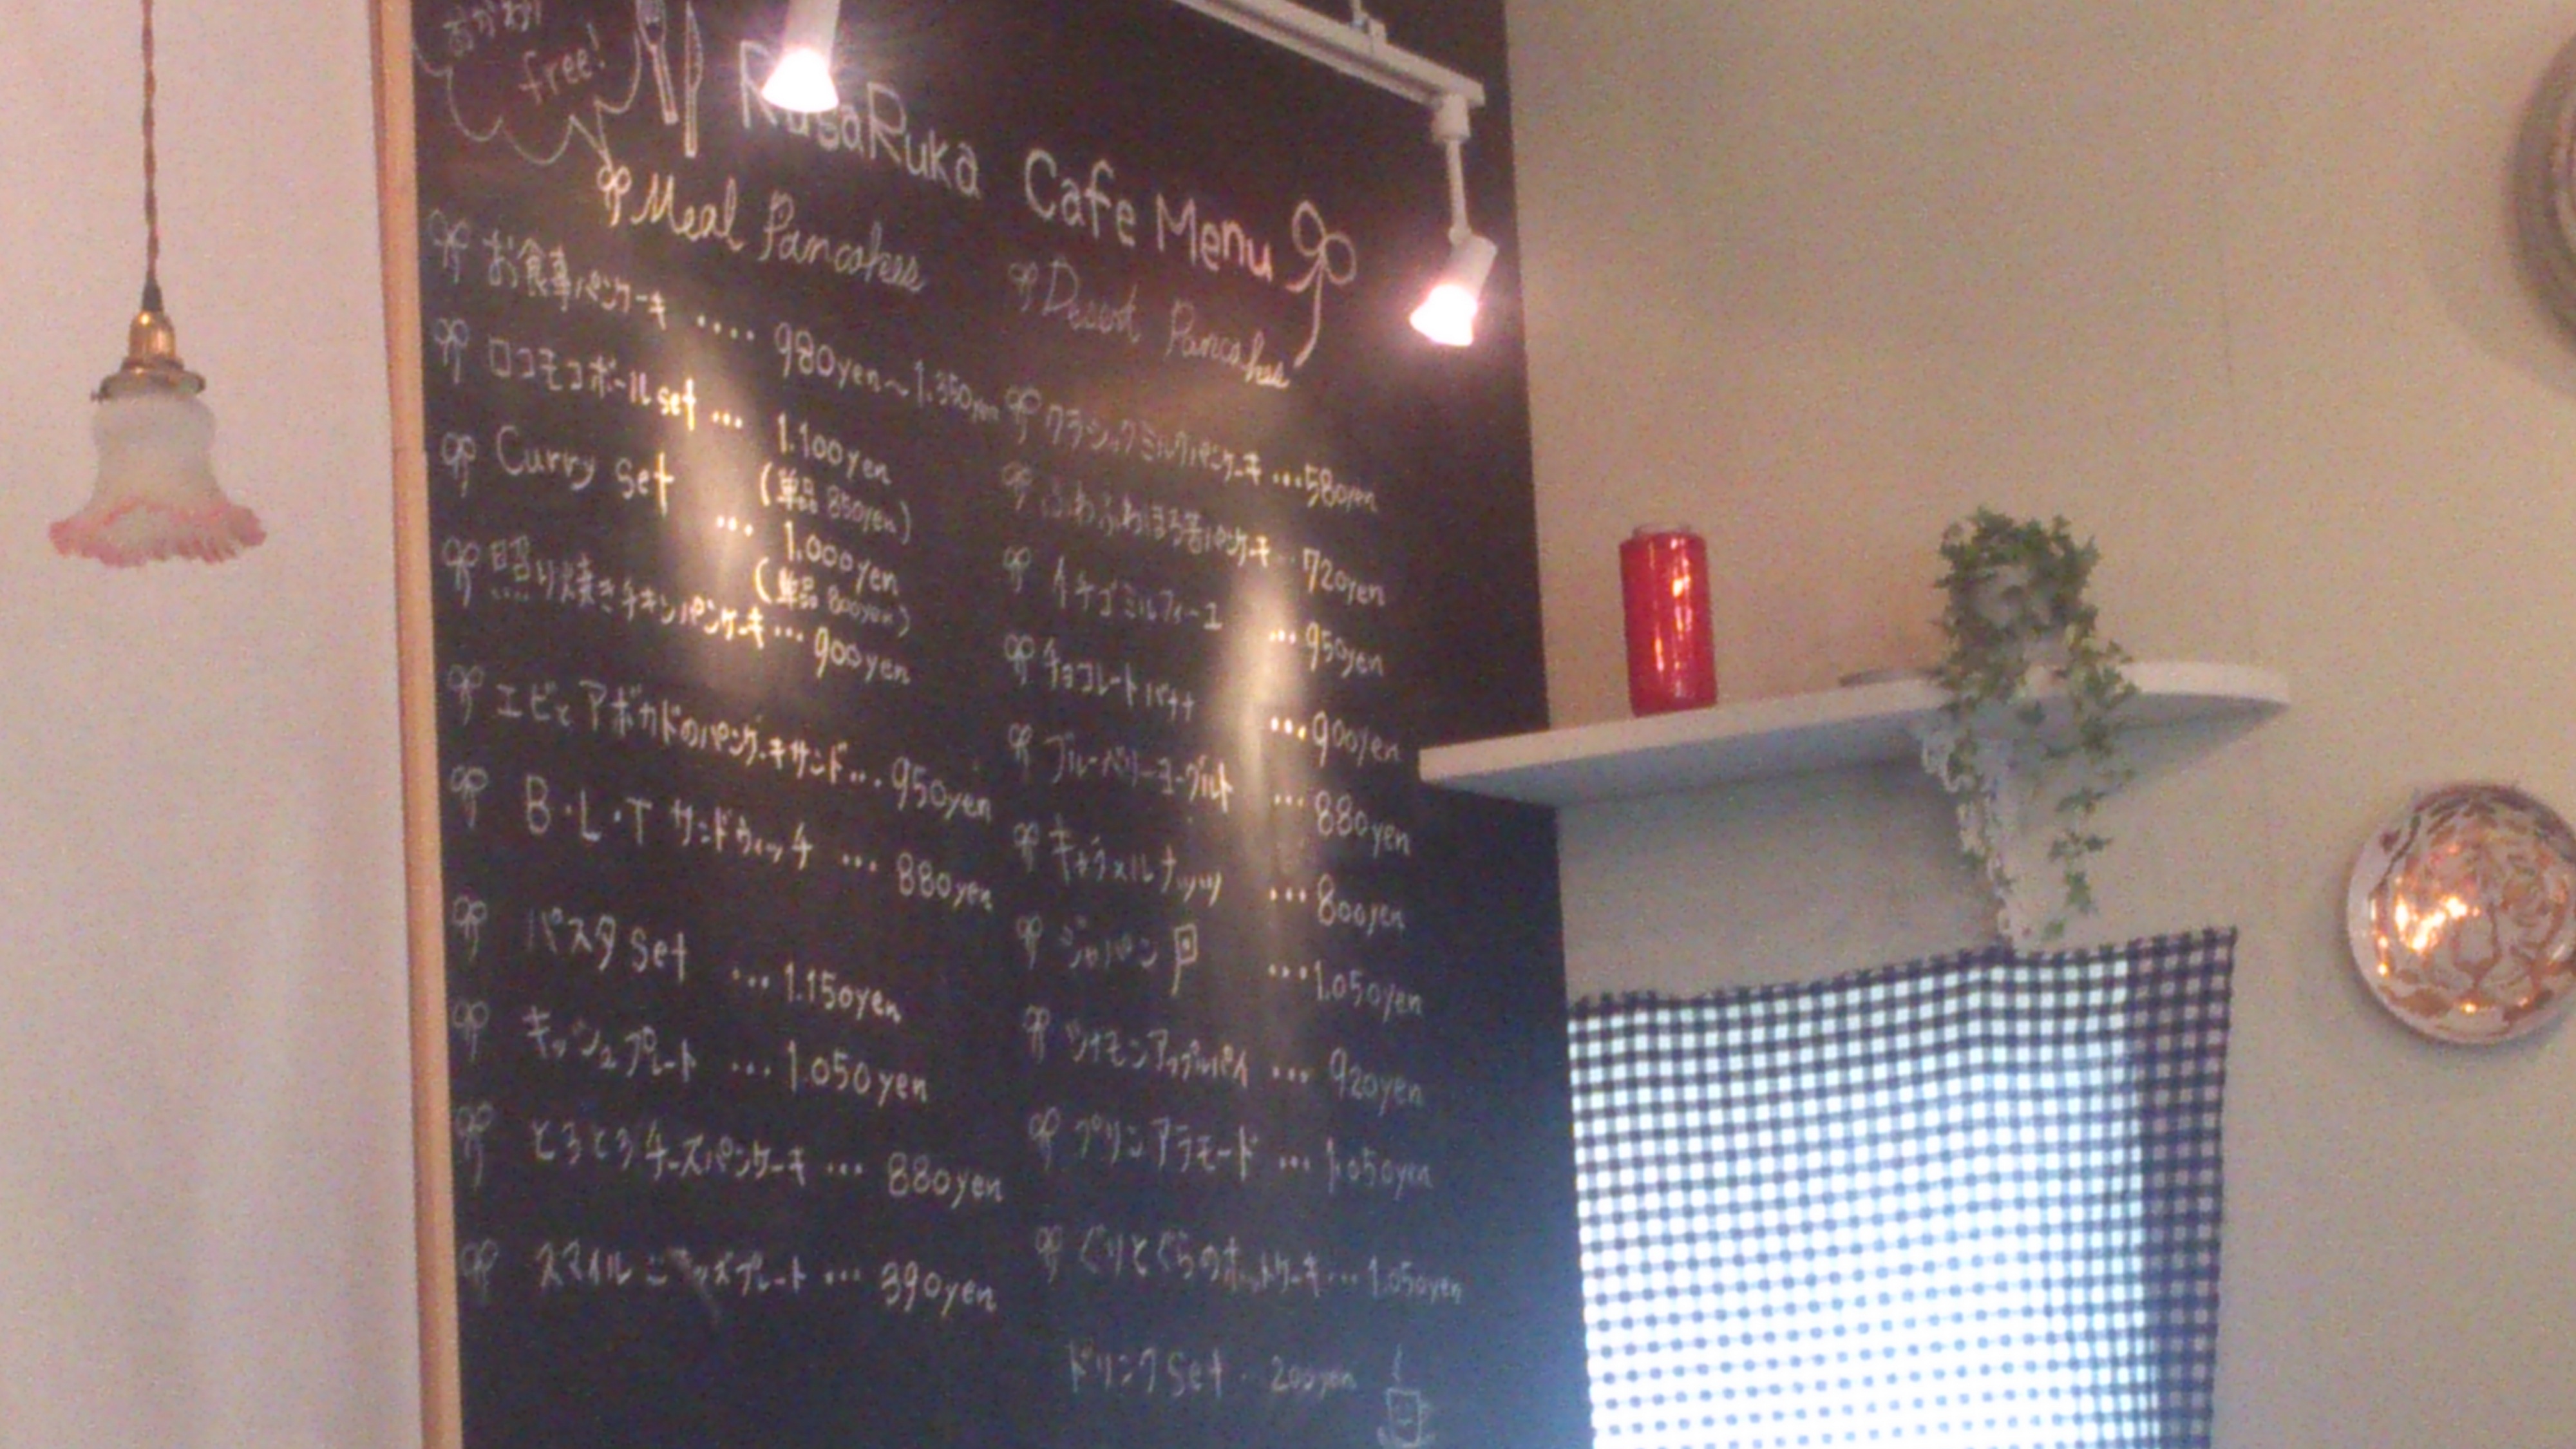 おかわり
free!
RusaRuka Cafe Menu
Meal Pancakes
お食事パンケーキ .... 980yen～1.350yen
ロコモコボールset ... 1.100yen
(単品 850yen)
Curry set ... 1.000yen
(単品 800yen)
照り焼きチキンパンケーキ... 900yen
エビとアボカドのパンケーキサンド... 950yen
B・L・T サンドウィッチ ... 880yen
パスタ set ... 1.150yen
キッシュプレート ... 1.050yen
とろとろチーズパンケーキ ... 880yen
スマイルキッズプレート ... 390yen
Desert Pancakes
クラシックミルクパンケーキ ...580yen
ふわふわほろ苦パンケーキ...720yen
イチゴミルフィーユ ...950yen
チョコレートバナナ ...900yen
ブルーベリーヨーグルト ...880yen
キャラメルナッツ ...800yen
ジャパン ...1.050yen
シナモンアップルパイ ... 920yen
プリンアラモード ... 1.050yen
ぐりとぐらのホットケーキ... 1.050yen
ドリンクset . 200yen